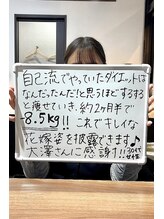 自己流でやっていたダイエットは
なんだったんだ!と思うほどするする
と痩せていき、約2ヶ月半で
8.5kg!! これでキレイな
花嫁姿を披露できます♪
大澤さんに感謝!! 30代女性